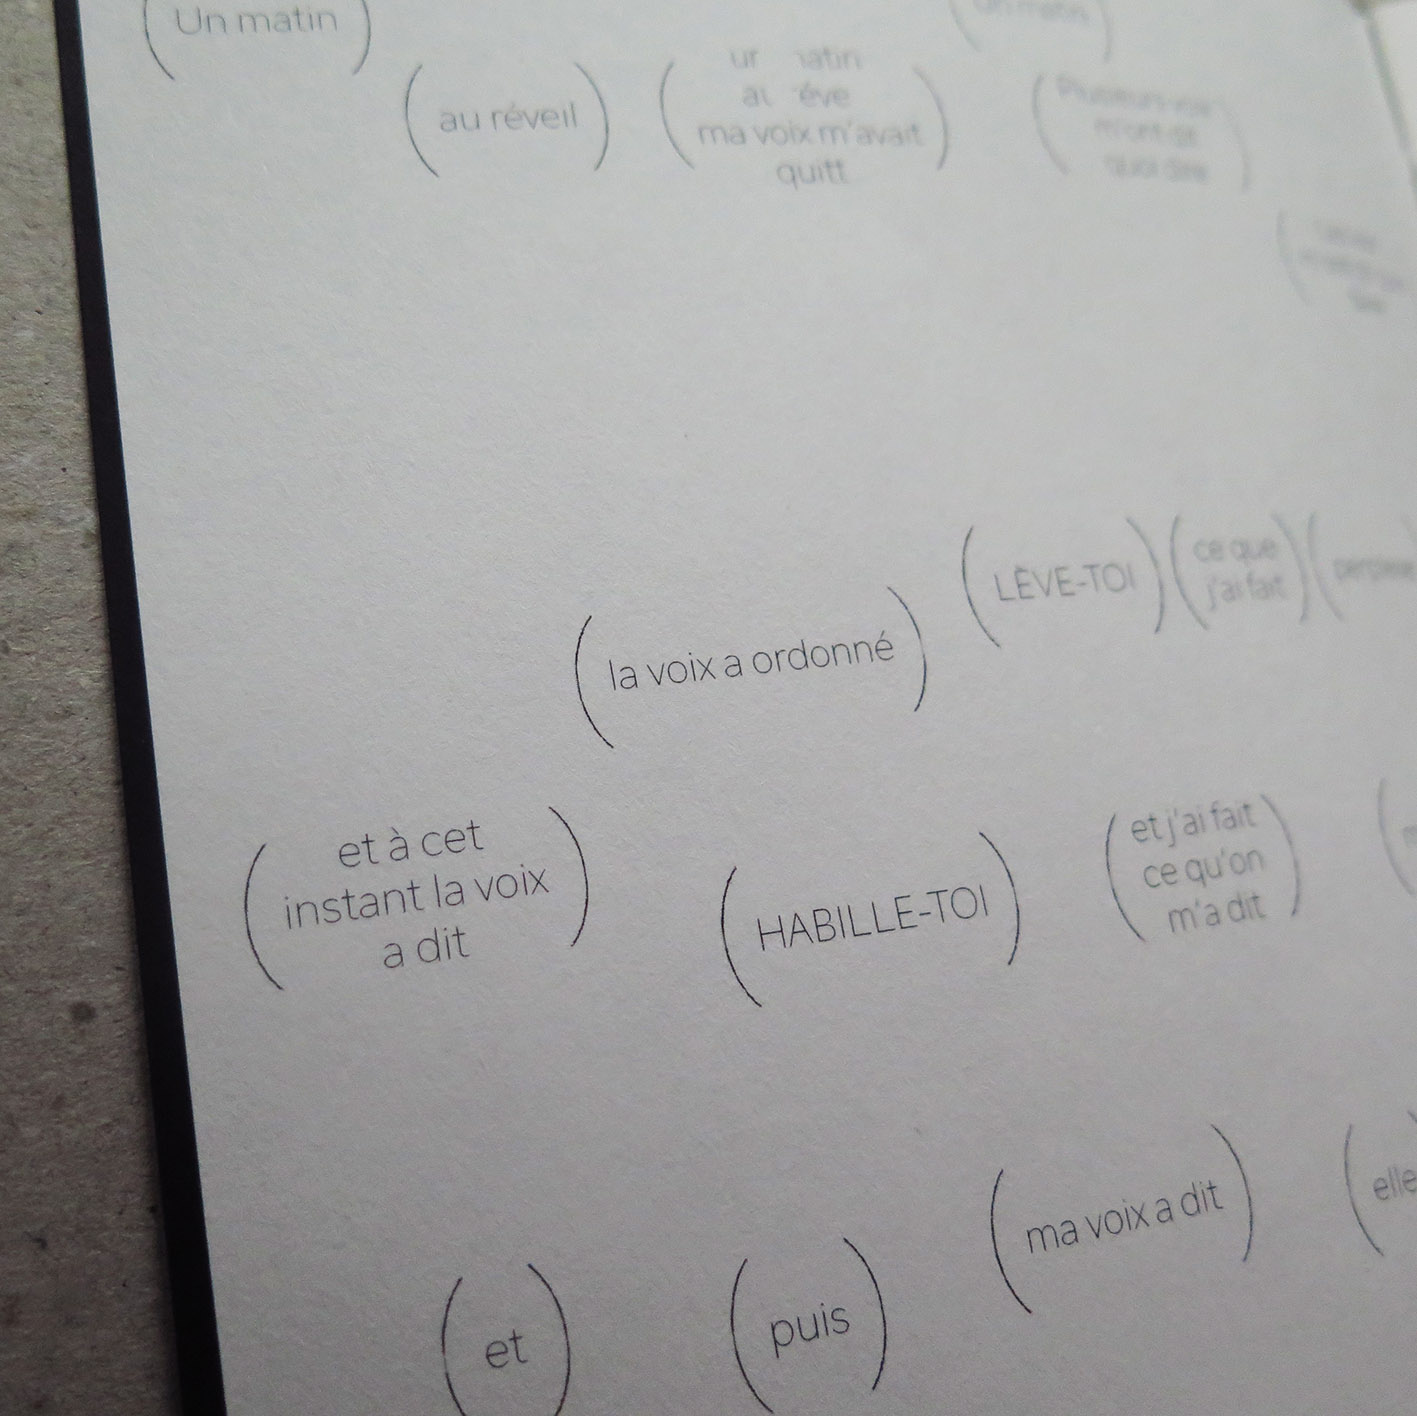 Un matin
au réveil
ur  natin
al  éve
ma voix m'avait
quitt
Un matin
LÈVE-TOI
ce que
j'ai fait
la voix a ordonné
et à cet
instant la voix
a dit
HABILLE-TOI
et j'ai fait
ce qu'on
m'a dit
ma voix a dit
elle
et
puis